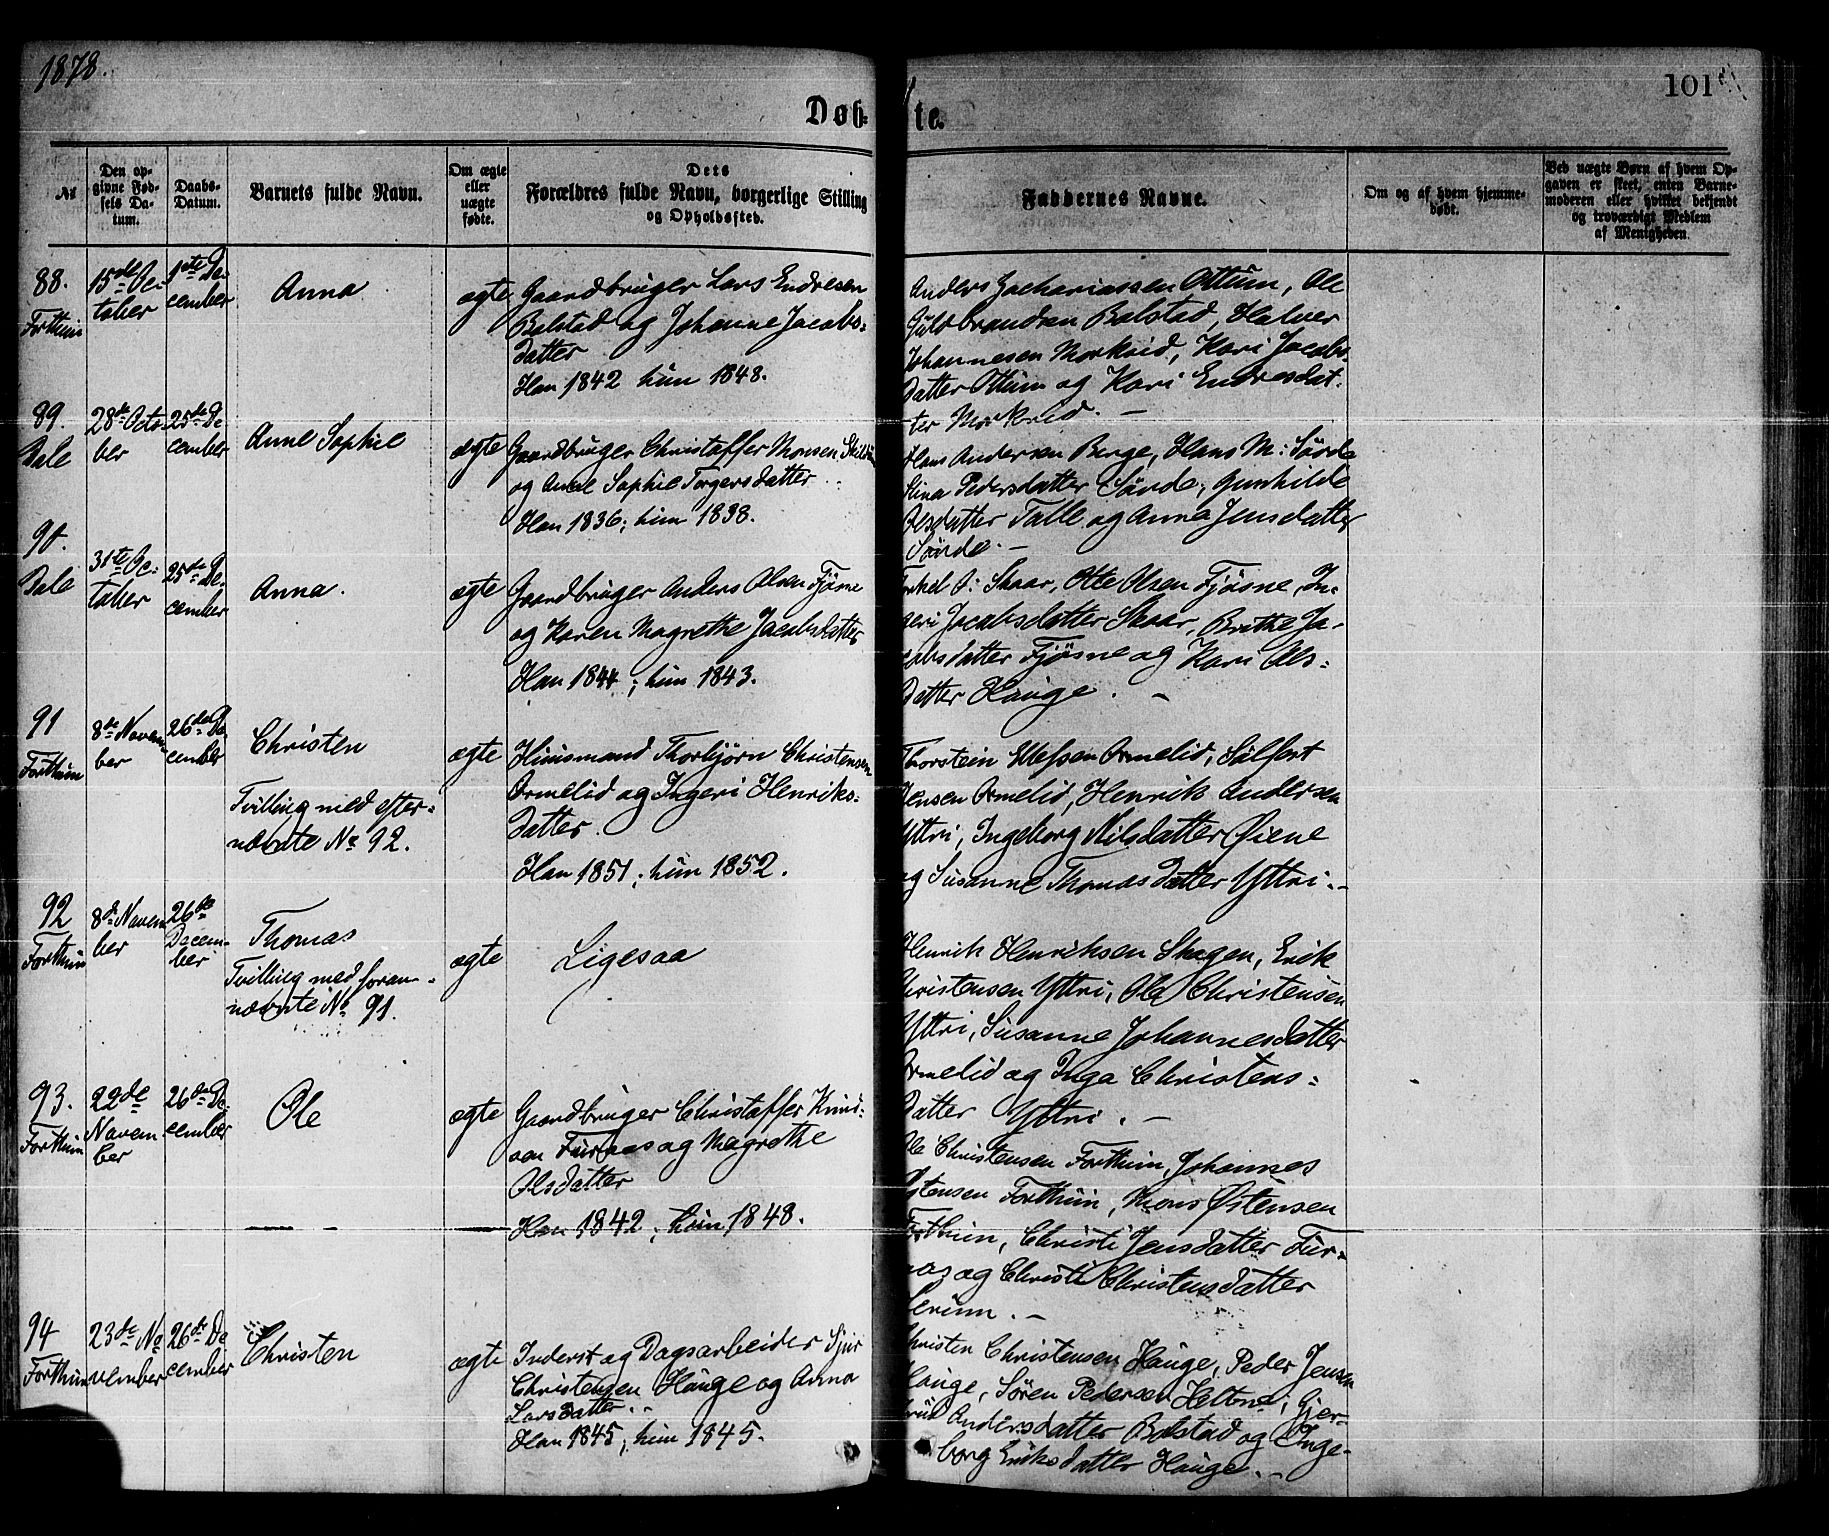 1878.
101
Døbte.
№
Den opgivne Fødsels Datum.
Daabs-Datum.
Barnets fulde Navn.
Om ægte eller uægte fødte.
Dets Forældres fulde Navn, borgerlige Stilling og Opholdssted.
Faddernes Navne.
Om og af hvem hjemmedøbt.
Ved uægte Børn af hvem Opgaven er skeet, enten Barnemoderen eller hvilket bekjendt og troværdigt Medlem af Menigheden.
88.
Forthun
15de Oc-
tober
1ste De-
cember
Anna
ægte
Gaardbruger Lars Endresen
Bolstad og Johanne Jacobs-
datter
Han 1842 hun 1848.
Anders Zachariassen Ottum, Ole
Guldbrandsen Bolstad, Halvor
Johannesen Morkrid, Kari Jacobs-
datter Ottum og Kari Endresdat-
ter Morkrid. —
89.
Dale
28de Octo-
ber
25de De-
cember
Anne Sophie
ægte
Gaardbruger Christoffer Monsen
og Anne Sophie Torgersdatter
Han 1836; hun 1838.
Hans Andersen Berge, Hans M: Sørde
Stina Pedersdatter Sørde, Gunhilde
Olsdatter Talle og Anna Jensdatter
Sørde. —
90.
Dale
31te Oc-
tober
25de De-
cember
Anna.
ægte
Gaardbruger Anders Olsen Fjøsne
og Karen Magrethe Jacobsdatter
Han 1844; hun 1843.
O: Skaar, Otte Olsen Fjøsne, In-
geri Jacobsdatter Skaar, Brithe Ja-
cobsdatter Fjøsne og Kari Ols-
datter Hauge. —
91
Forthun
8de Novem-
ber
26de De-
cember
Christen
Tvilling med efter-
nævnte No 92.
ægte
Huusmand Thorbjørn Christensen
Ormelid og Ingeri Henriks-
datter.
Han 1851; hun 1852.
Thorstein Ormelid, Sølfert
Jensen Ormelid, Henrik Andersen
Yttri, Ingeborg Nilsdatter Øiene
og Susanne Thomasdatter Yttri. —
92
Forthun
8de Novem-
ber
26de
Decem-
ber
Thomas
Tvilling med foran-
nævnte No 91.
ægte
Ligesaa
Henrik Henriksen Skagen, Erik
Christensen Yttri, Ole Christensen
Yttri, Susanne Johannesdatter
Ormelid og Inga Christens-
datter Yttri. —
93.
Forthun
22de
Novem-
ber
26de De-
cember
Ole
ægte
Gaardbruger Christoffer Knud-
sen Furaas og Magrethe
Olsdatter
Han 1842; hun 1848.
Ole Christensen Forthun, Johannes
Østensen Forthun, Mons Østensen
Forthun, Christi Jensdatter Fur-
aas og Christi Christensdatter
94
Forthun
23de No-
vember
26de De-
cember
Christen
ægte
Inderst og Dagsarbeider Sjur
Christensen Hauge og Anna
Larsdatter. -
Han 1845; hun 1845.
Christen Christensen Hauge, Peder Jensen
Hauge, Søren Pedersen Heltne, Gjer-
trud Andersdatter Bolstad og Inge-
borg Eriksdatter Hauge. —